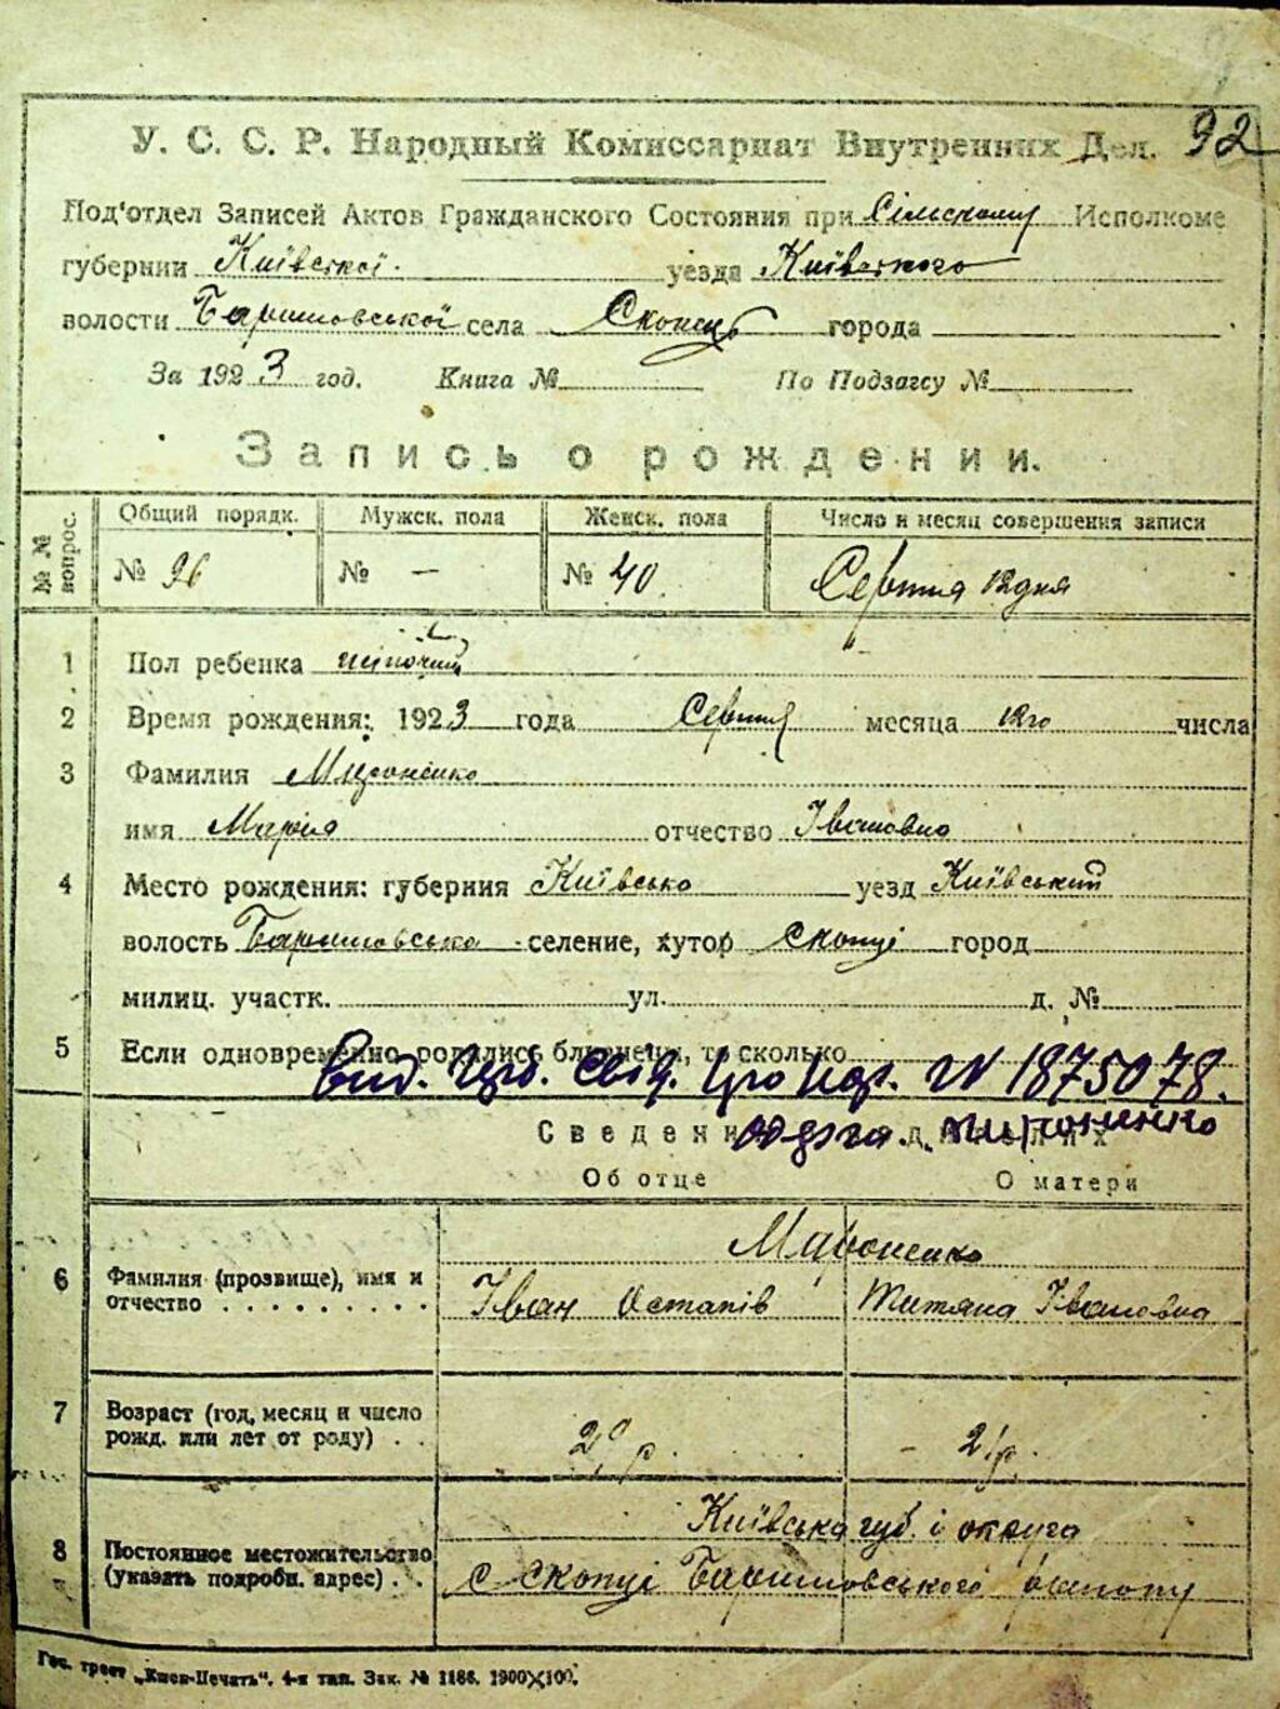 92
У. С. С. Р. Народный Комиссариат Внутренних Дел.
Под'отдел Записей Актов Гражданского Состояния при Сільскому Исполкоме
губернии Київської уезда Київского
волости Баришовської села Скопець города
За 1923 год. Книга № По Подзагсу №
Запись о рождении.
№ № вопрос. Общий порядк. Мужск. пола Женск. пола Число и месяц совершения записи
№ 96 № — № 40. Серпня 12 дня
1 Пол ребенка жіночий
2 Время рождения: 1923 года Серпня месяца 12го числа
3 Фамилия Мироненко
имя Марія отчество Івановна
4 Место рождения: губерния Київсько уезд Київський
волость Баришовська селение, хутор Скопці город
милиц. участк. ул. д. №
5 Если одновременно родились близнецы, то сколько
Вид. свід. про нар. N 1875078.
Мироненко
Сведения о родителях
Об отце О матери
6 Фамилия (прозвище), имя и отчество . . . . . . . . . Мироненко
Іван Остапів Титяна Івановна
7 Возраст (год, месяц и число рожд. или лет от роду) . . 20 р. 21 р.
8 Постоянное местожительство (указать подробн. адрес) . . Київська губ. і округа
с Скопці Баришовського району
Гос. трест „Киев-Печать". 4-я тип. Зак. № 1186. 1900Х100.